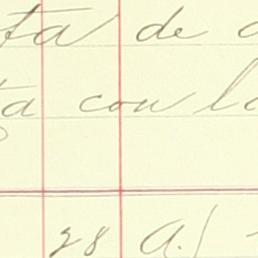 ta de
ta con la
28 A./